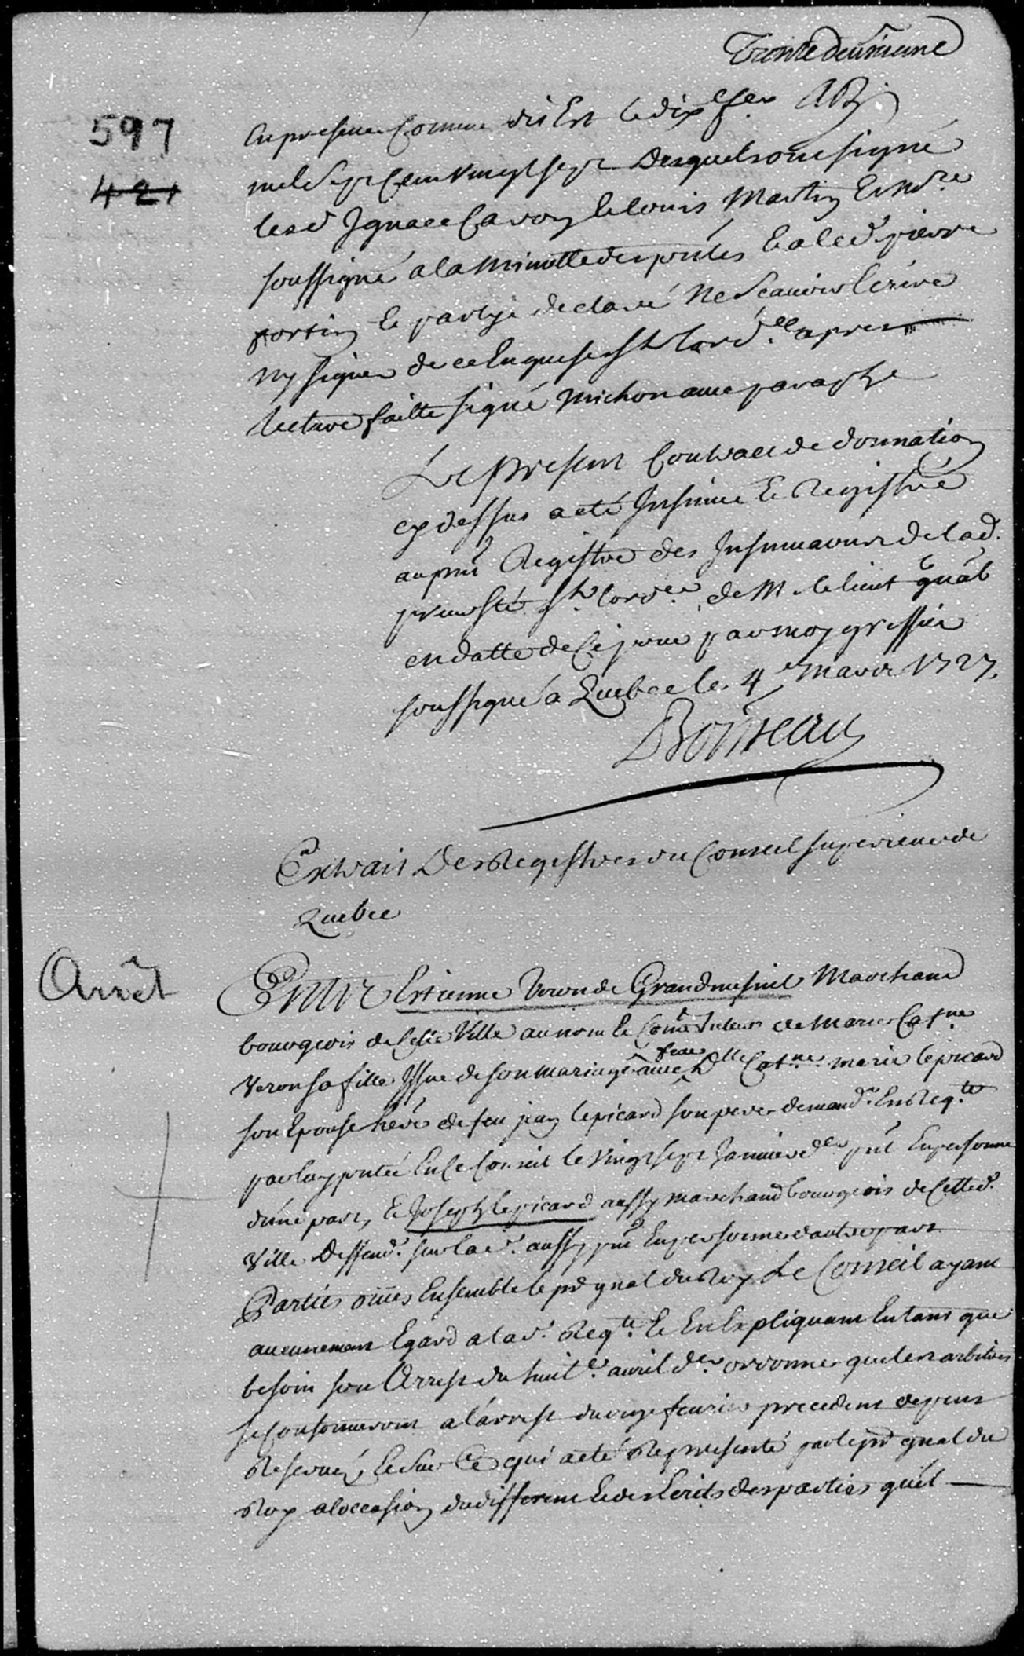 Trente deuxieme
597
421
En presence comme dit Est le dix fer AB
mil Sept Cent vingt sept Desquels ont signé
lesd Ignace Cavoy le louis Martin Et Nre
soussigné a la Minutte des pntes Et a led pierre
fortin le partye declaré Ne Scavoir Ecrire
ny signer de ce Enquis st lord.ce apres
lecture faitte signé Michon avec paraphe
Le present Contract de donnation
cy dessus a eté Insinué Et Registré
au pnt Registre des Insinuations de lad.
prevosté st lord.ce de M. le lieut gnal
en datte de Ce jour par moy greffier
soussigné a Quebec le 4e mars 1727.
Boisseau
Extrait Des Registres du Conseil superieur de
Quebec
Arrêt
Entre Estienne Veron de Grandmesnil Marchand
bourgeois de Cette Ville au nom Et Comme Tuteur de Marie Catne
Veron sa fille Issue de son mariage avec feue Dlle Catne marie lepicard
son Epouse herre de feu jean lepicard son pere demandr En Reqte
par luy pntée En Ce Conseil le Vingt sept Janvier der pnt En personne
dune part, Et Joseph lepicard aussy marchand bourgeois de Cetted.
Ville Deffendr sur lad. aussy pnt En personne dautre part
Parties ouies Ensemble le pr gnal du Roy Le Conseil ayant
aucunement Egard a lad. Reqte Et En Expliquant En tant que
besoin son Arrest du huit.e avril der ordonne que les arbitres
se Conformeront a l'arrest du onze fevrier precedent depens
Reservés, Et Sur Ce qui a eté Representé par le pr gnal du
Roy a loccasion du different Et des Ecrits des parties quil